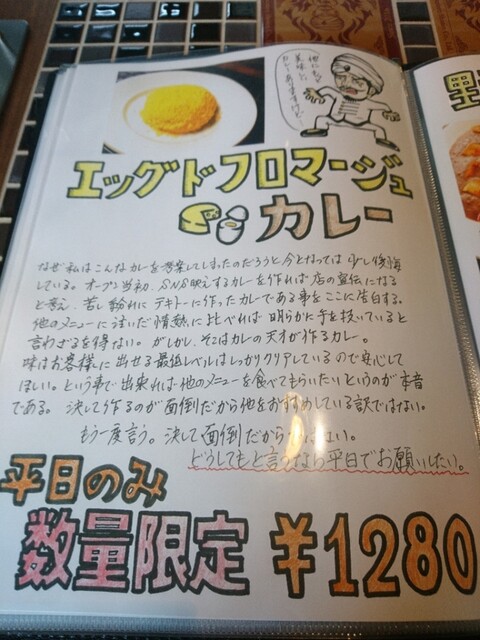 他にも
美味と
カレーありますけど…
エッグドフロマージュ
カレー
なぜ私はこんなカレーを考案してしまったのだろうと今となっては少し後悔
している。オープン当初、SNS映えするカレーを作れば店の宣伝になる
と考え、苦し紛れにテキトーに作ったカレーである事をここに告白する。
他のメニューに注いだ情熱に比べれば明らかに手を抜いていると
言わざるを得ない。がしかし、そこはカレーの天才が作るカレー。
味はお客様に出せる最低レベルはしっかりクリアしているので安心して
ほしい。という事で出来れば他のメニューを食べてもらいたいというのが本音
である。決して作るのが面倒だから他をおすすめしている訳ではない。
もう一度言う。決して面倒だから ない。
どうしてもと言うなら平日でお願いしたい。
平日のみ
数量限定 ¥1280